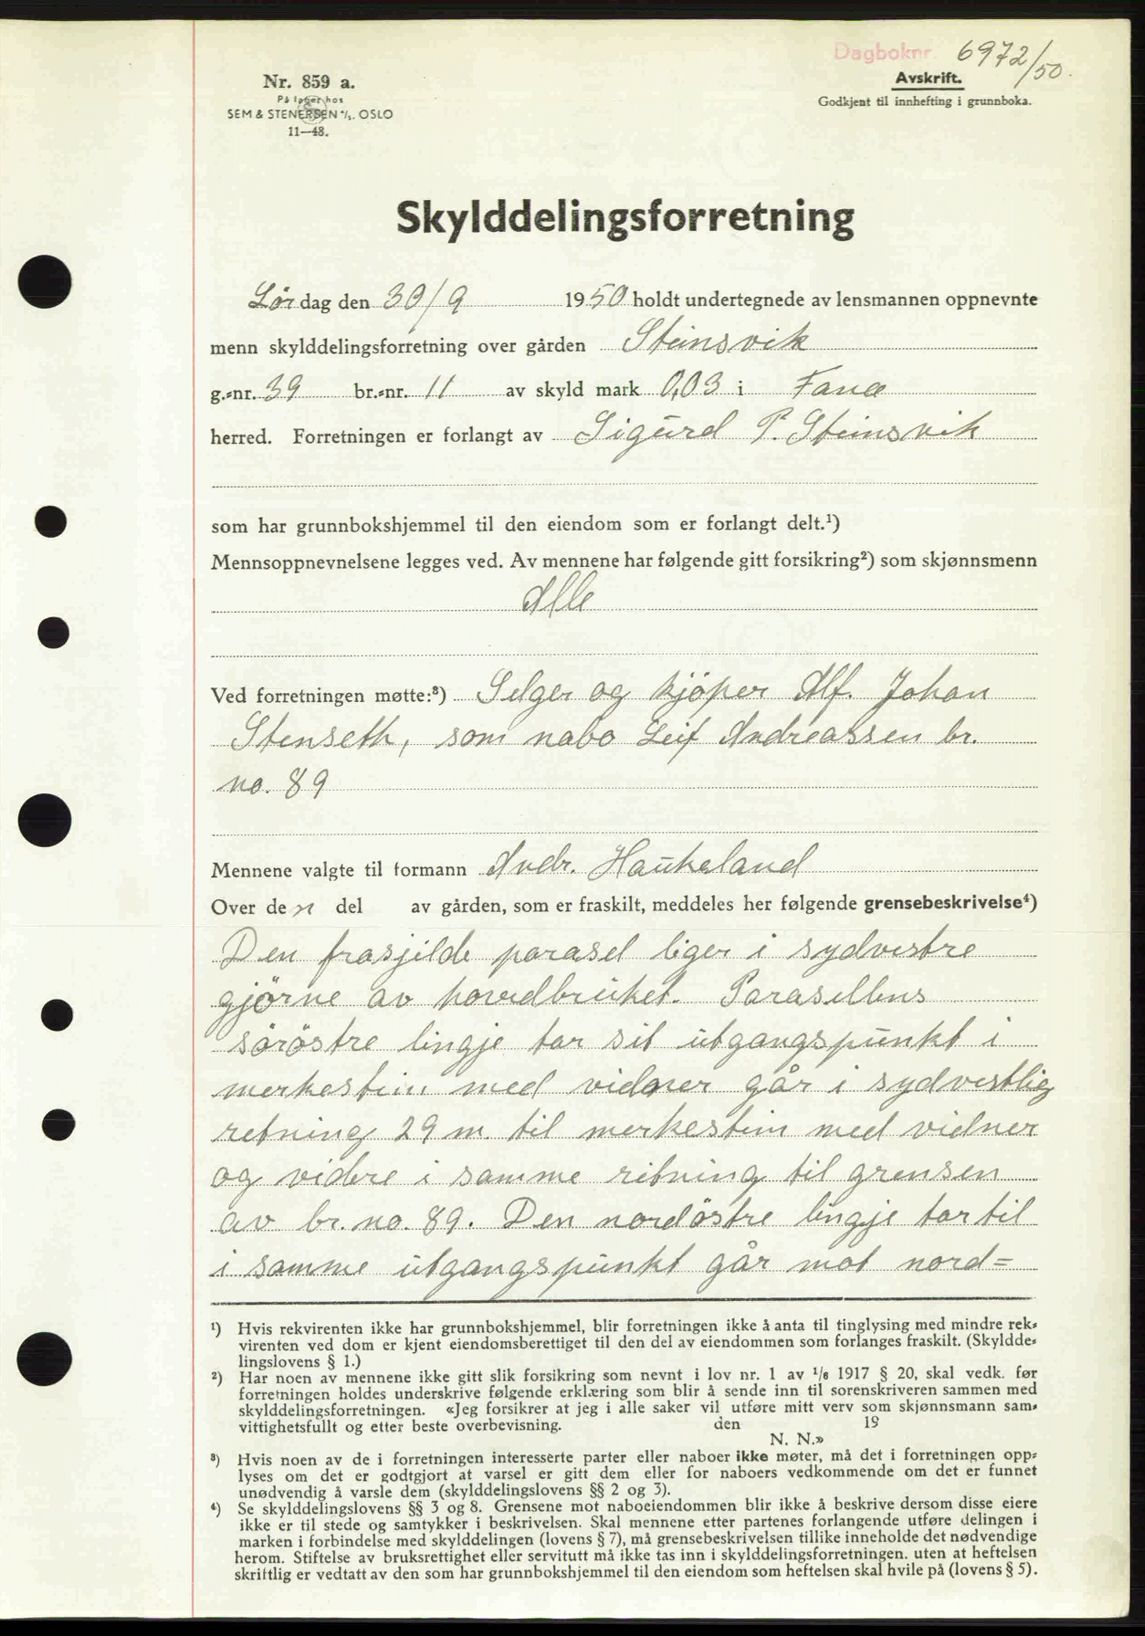 Dagboknr 6972/50.
Nr. 859 a.
På lager hos
SEM & STENERSEN A/S. OSLO
11—48.
Avskrift.
Godkjent til innhefting i grunnboka.
Skylddelingsforretning
Lördag den 30/9 1950 holdt undertegnede av lensmannen oppnevnte
menn skylddelingsforretning over gården Steinsvik
g.-nr. 39 br.-nr. 11 av skyld mark 0,03 i Fana
herred. Forretningen er forlangt av Sigurd P. Steinsvik
som har grunnbokshjemmel til den eiendom som er forlangt delt.¹)
Mennsoppnevnelsene legges ved. Av mennene har følgende gitt forsikring²) som skjønnsmenn
Alle
Ved forretningen møtte:³) Selger og kjöper Alf. Johan
Stenseth, som nabo Leif Andreassen br.
no. 89
Mennene valgte til formann Andr. Haukeland
Over den del av gården, som er fraskilt, meddeles her følgende grensebeskrivelse⁴)
Den frasjilde parasel liger i sydvestre
gjörne av hovedbruket. Parasellens
söröstre lingje tar sit utgangspunkt i
merkestein med vidner går i sydvestlig
retning 29 m. til merkestein med vidner
og videre i samme retning til grensen
av br. no. 89. Den nordöstre lingje tar til
i samme utgangspunkt går mot nord=
¹) Hvis rekvirenten ikke har grunnbokshjemmel, blir forretningen ikke å anta til tinglysing med mindre rek-
virenten ved dom er kjent eiendomsberettiget til den del av eiendommen som forlanges fraskilt. (Skyldde-
lingslovens § 1.)
²) Har noen av mennene ikke gitt slik forsikring som nevnt i lov nr. 1 av ¹/₆ 1917 § 20, skal vedk. før
forretningen holdes underskrive følgende erklæring som blir å sende inn til sorenskriveren sammen med
skylddelingsforretningen. «Jeg forsikrer at jeg i alle saker vil utføre mitt verv som skjønnsmann sam-
vittighetsfullt og etter beste overbevisning. den 19
N. N.»
³) Hvis noen av de i forretningen interesserte parter eller naboer ikke møter, må det i forretningen opp-
lyses om det er godtgjort at varsel er gitt dem eller for naboers vedkommende om det er funnet
unødvendig å varsle dem (skylddelingslovens §§ 2 og 3).
⁴) Se skylddelingslovens §§ 3 og 8. Grensene mot naboeiendommen blir ikke å beskrive dersom disse eiere
ikke er til stede og samtykker i beskrivelsen. Skal mennene etter partenes forlangende utføre delingen i
marken i forbindelse med skylddelingen (lovens § 7), må grensebeskrivelsen tillike inneholde det nødvendige
herom. Stiftelse av bruksrettighet eller servitutt må ikke tas inn i skylddelingsforretningen. uten at heftelsen
skriftlig er vedtatt av den som har grunnbokshjemmel til den eiendom som heftelsen skal hvile på (lovens § 5).